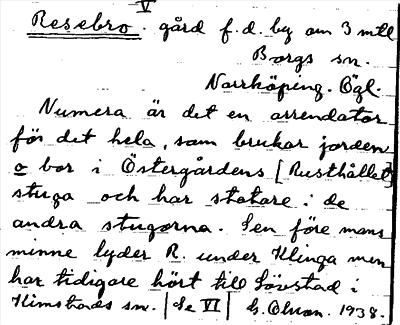 V
Resebro. gård f.d. by om 3 mtl
Borgs sn.
Norrköping. Ögl.
Numera är det en arrendator
för det hela, som brukar jorden
o bor i Östergårdens [Rusthållet]
stuga och har statare i de
andra stugorna. Sen före mans
minne lyder R. under Klinga men
har tidigare hört till Lövstad i
Kimstads sn. [Se VI] G. Olson. 1938.